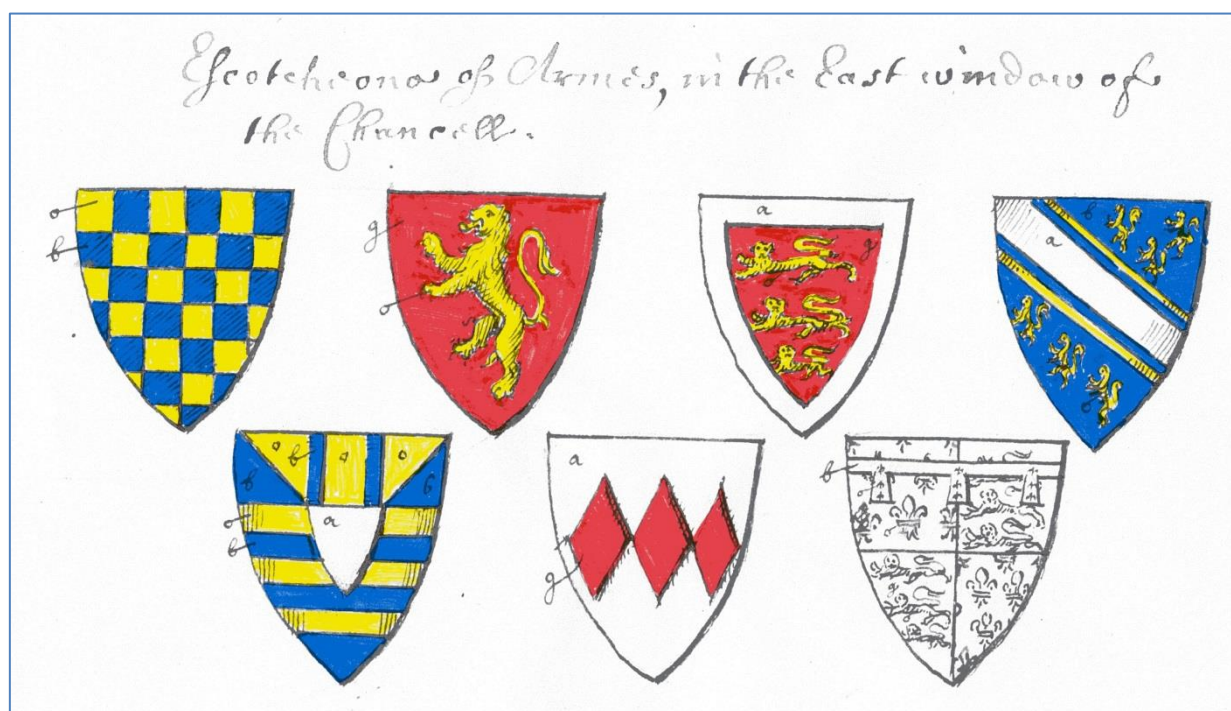 Escotcheons of Armes, in the East window of
the Chancell.
o
b
g
o
a
g
o
b
a
o
o
b
o
o
b
b
a
o
b
a
g
b